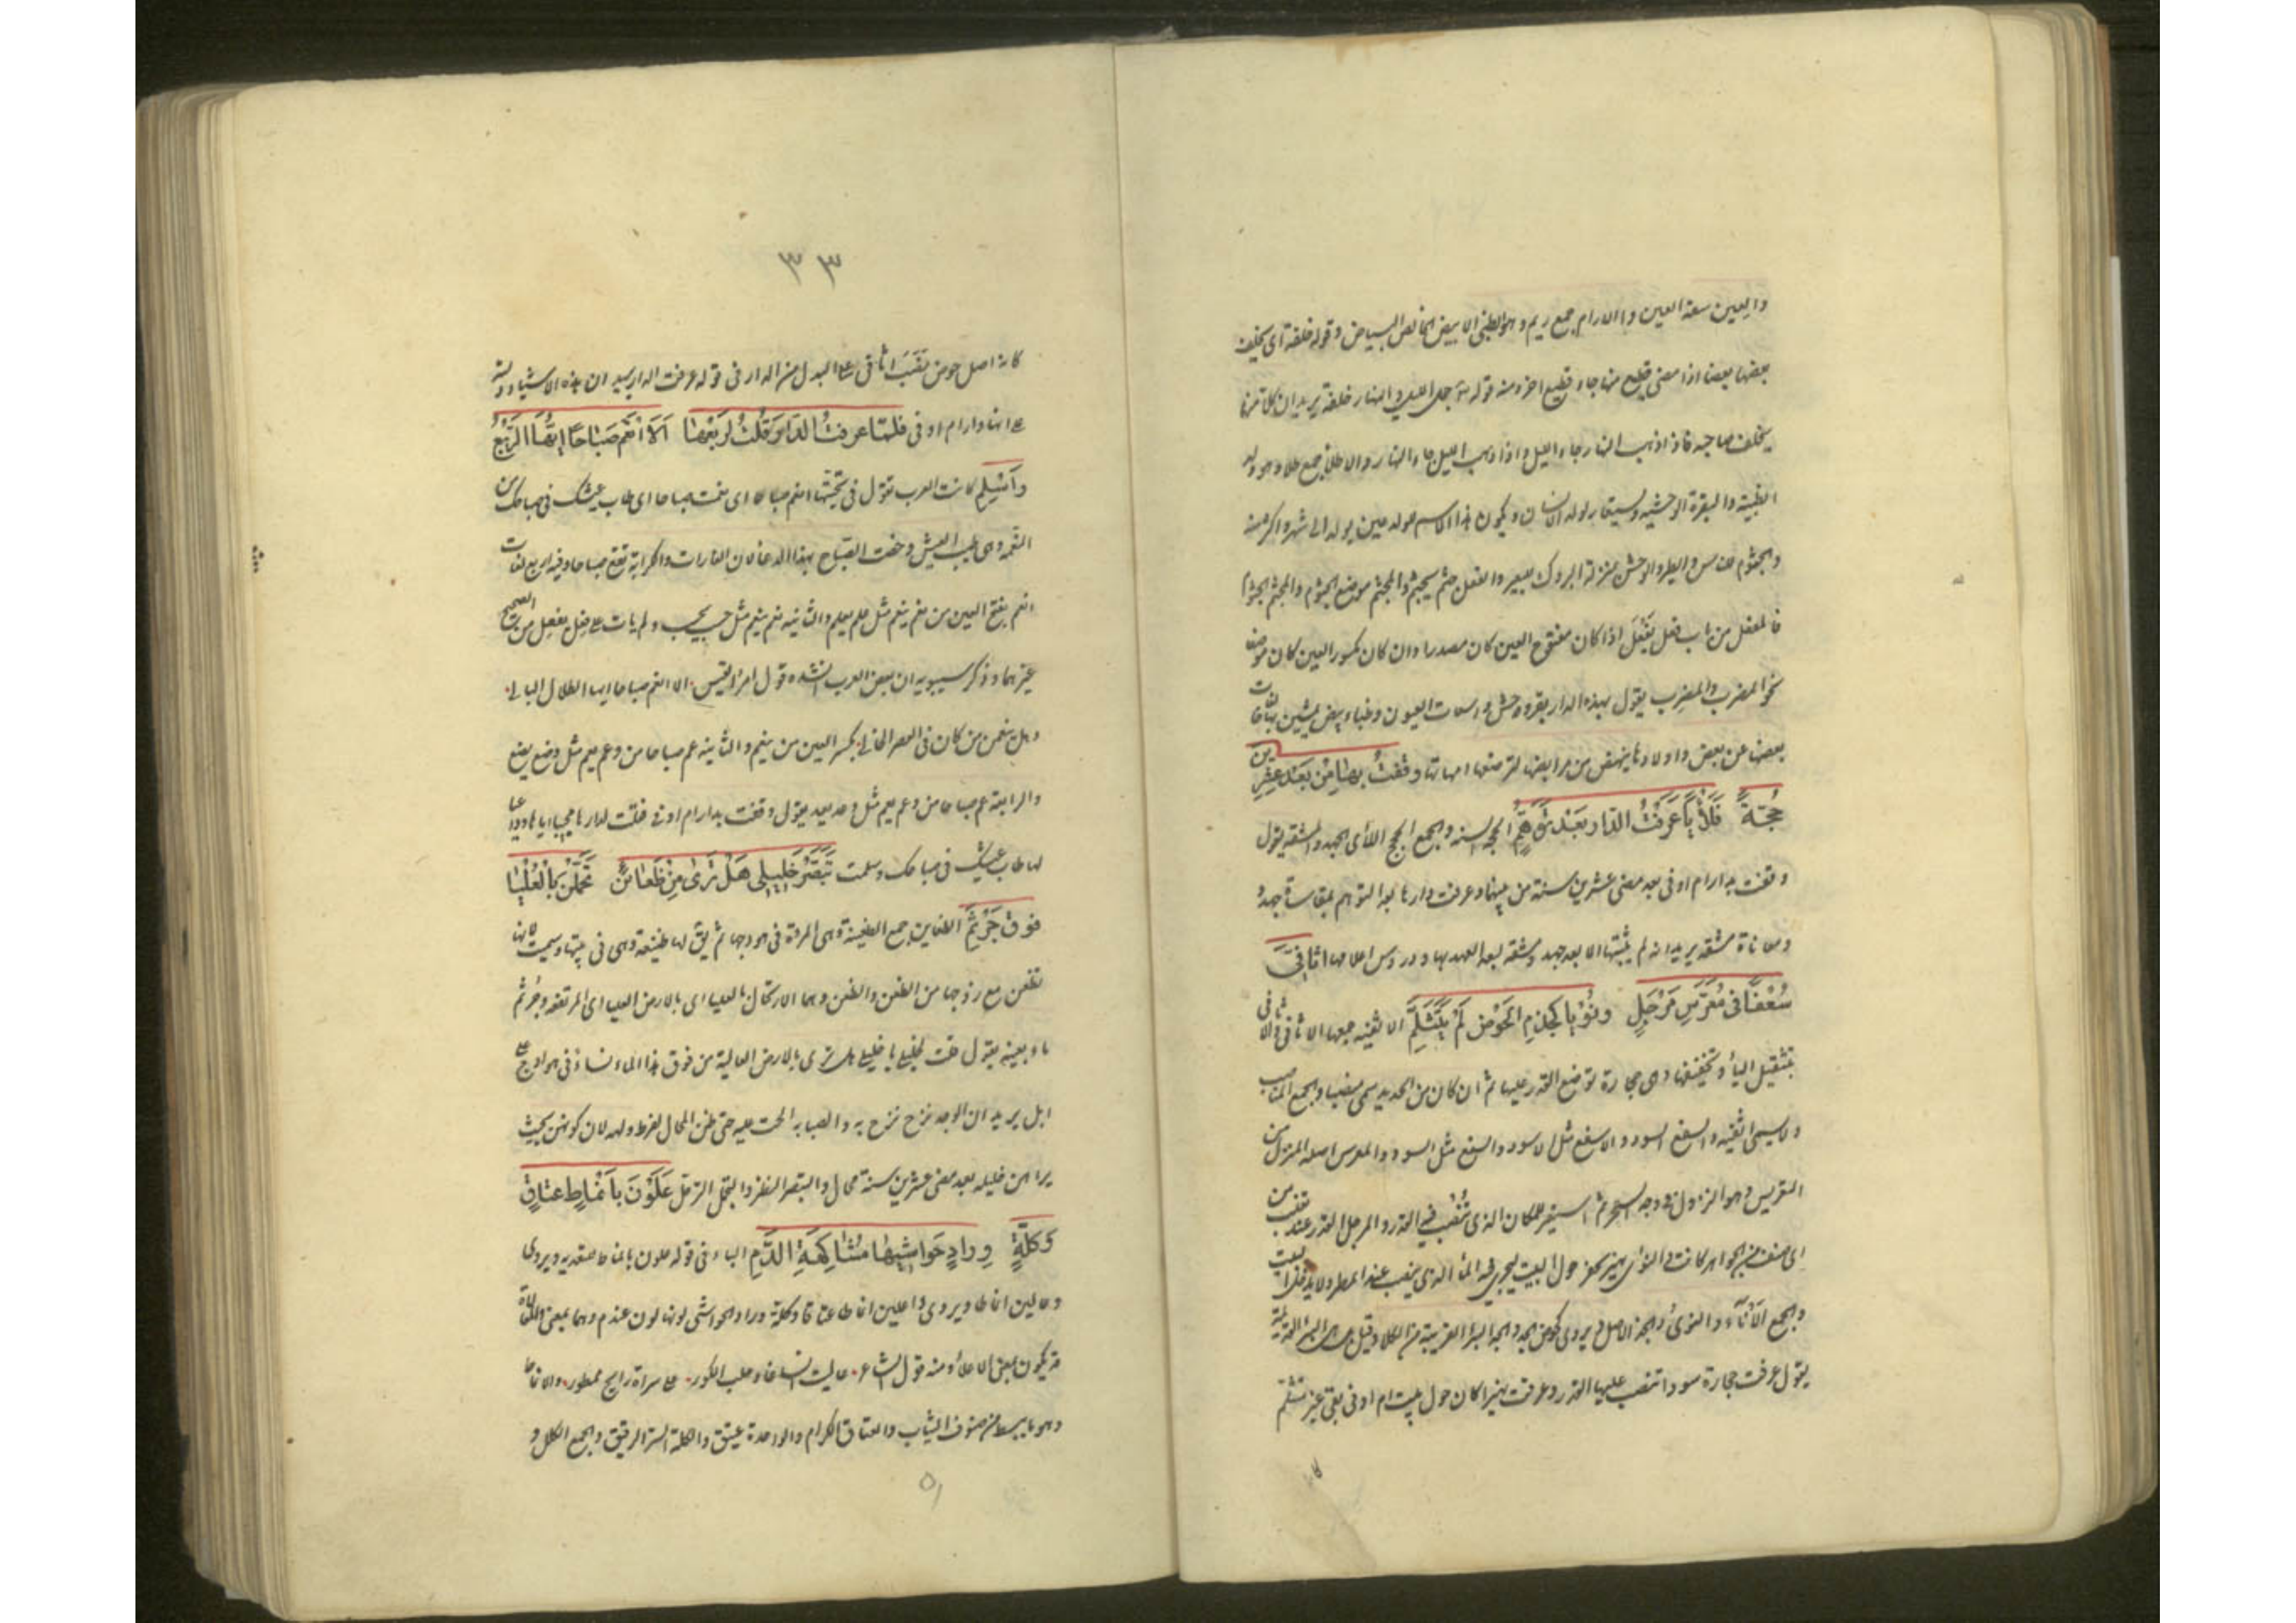 والعين سعة العين والارام جمع ريم وهو الظبى الابيض الخالص البياض وقوله خلفة اى يخلف
بعضها بعضا اذا مضى قطيع منها جاء قطيع اخر ومنه قوله جعل الليل والنهار خلفة يريد ان كلا منهما
يخلف صاحبه فاذا ذهب النهار جاء الليل واذا ذهب الليل جاء النهار والاطلاء جمع طلا وهو ولد
الظبية والبقرة الوحشيه ويستعار لولد الانسان ويكون هذا الاسم للولد حين يولد الى شهر او اكثر منه
والجثوم للناس والطير والوحش بمنزلة البروك للبعير والفعل جثم يجثم والمجثم موضع الجثوم والمجثم الجثوم
فالمفعل من باب فعل يَفْعَل اذا كان مفتوح العين كان مصدرا وان كان مكسور العين كان موضعا
نحو المضرب والمضرِب يقول بهذه الدار بقر وحش واسعات العيون وظباء بيض يمشين بها خالفات
بعضها عن بعض واولادها ينهضن من مرابضها لترضعها امهاتها وقفتُ بها مِنْ بَعْدِ عِشْرِين
حُجّةً فَلَأْيًا عَرَفْتُ الدّار بَعْدَ تَوَهُّمِ الحجه السنه والجمع الحجج اللأى الجهد والمشقه يقول
وقفت بدار ام اوفى بعد مضى عشرين سنة من بينها وعرفت دارها بعد التوهم بمقاساة جهد و
ومعاناة مشقه يريد انه لم يثبتها الا بعد جهد ومشقه لبعد العهد بها ودروس اعلامها اَثافِيَّ
سُعْفًا فى مُعَرّسِ مِرْجَلٍ ونُؤْيًا كَجِذْمِ الحَوْضِ لَمْ يَتَثَلَّمِ الاثفيه جمعها الاثافى والاثافى
بتثقيل الياء وتخفيفها وهى حجارة توضع القدر عليها ثم ان كان من الحديد سمى منصبا والجمع المناصب
ولا يسمى اثفيه والسفع السود والاسفع مثل الاسود والسفع مثل السود والمعرس اصله المنزل من
التعريس وهو النزول فى وجه السحر ثم استعير للمكان الذى تُنْصَب فيه القدر والمرجل القدر عند ثعلب من
اى صنف من الجواهر كانت والنؤى نهير يحفر حول البيت ليجرى فيه الماء الذى ينصب عند المطر ولا يدخل البيت
والجمع الآنآء والنوىّ والجذم الاصل ويروى كحوض الجد والجد البئر القريبة من الكلاء وقيل بل هى البئر القديمة
يقول عرفت حجارة سودا تنصب عليها القدر وعرفت نهيرا كان حول بيت ام اوفى بقى غير متثلم
٣٣
كانه اصل حوض نَصَبَ اثافى على البدل من الدار فى قوله عرفت الدار يريد ان هذه الاشياء دلته
على انها دار ام اوفى فلمّا عرفتُ الدّارَ قُلتُ لِرَبْعِها اَلَا انْعَمْ صَبَاحًا ايّهَا الرَّبْعُ
وَاسْلَمِ كانت العرب تقول فى تحيتها انعم صباحا اى نعمت صباحا اى طاب عيشك فى صباحك من
النعمه وهى طيب العيش وخصت الصباح بهذا الدعا لان الغارات والكراية تقع صباحا وفيه اربع لغات
انعم بفتح العين من نعم ينعم مثل علم يعلم والثانيه نعم ينعم مثل حسب يحسب ولم يات على فعِل يفعِل من الصحيح
غيرهما وذكر سيبويه ان بعض العرب انشده قول امرء القيس الا انعم صباحا ايها الطلال البالى
وهل ينعمن من كان فى العصر الخالى بكسر العين من ينعم والثانيه عم صباحا من وعم يعم مثل وضع يضع
والرابعة عم صباحا من وعم يعم مثل وعد يعد يقول وقفت بدار ام اوفى فقلت لدارها محييا اياها وداعيا
لها طاب عيشك فى صباحك وسلمت تَبَصَّرْ خَلِيلِى هَلْ تَرَى مِنْ ظَعَائِنٍ تَحَمَّلْنَ بِالْعُلْيَاء
فوق جُرْثُمِ الظعاين جمع الظعينة وهى المرءة فى هودجها ثم يق لها ظعينة وهى فى بيتها وسميت لانها
تظعن مع زوجها من الظعن والظعن وهما الارتحال بالعلياء اى بالارض العلياء اى المرتفعه وجُرثم
ماء بعينه يقول قلت لخليلى يا خليلى هل ترى بالارض العالية من فوق هذا الماء نساء فى هوادج على
ابل يريد ان الوجد برح برح به والصبابه الحت عليه حتى ظن المحال لفرط ولهه لان كونهن بحيث
يراهن خليله بعد مضى عشرين سنة محال والتبصر النظر والتحمل الترحل عَلَوْنَ بِاَنْمَاطٍ عِتَاقٍ
وَكِلّةٍ وِرادٍ حَوَاشِيهَا مُشَاكِهَةِ الدَّمِ الباء فى قوله علون بانماط للتعديه ويروى
وعالين انماطا ويروى واعلين انماطا عتاقا وكلة وراد الحواشى لونها لون عندم وهما بمعنى المعلاة
قد يكون بمعنى الاعلاء ومنه قول الشاعر عاليت انساعى وجلب الكور على سراة رايح ممطور والانماط
وهو ما يبسط من صنوف الثياب والعتاق الكرام والواحدة عتيق والكلة الستر الرقيق والجمع الكلل و